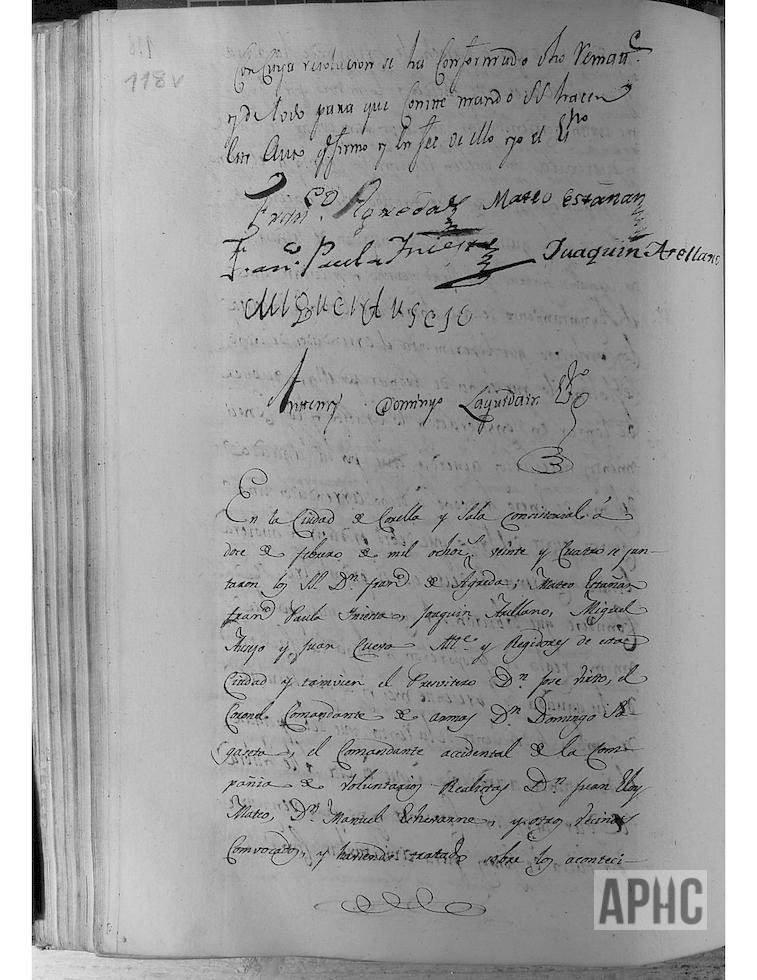 118v
Con Cuya resolucion se ha Conformado dho
y de todo para que Conste mando SS hacer
este Auto q firmo y en fee de ello yo el Sno
Franco. D Agreda Mateo Estañan
Franco. Paula Iriesta Juaquin Arellano
Antonio Domingo Laquidain
En la Ciudad de Corella y Sala Consistorial á
doce de febrero de mil ochos. veinte y Cuatro se jun-
taron los SS. Dn. franco de Agreda, Mateo Estañan
franco Paula Iriesta, Joaquin Arellano, Miguel
Ausejo y Juan Cuevo Ale. y Regidores de esta
Ciudad y tamvien el Presvitero Dn. Jose Nieto, el
Coronel Comandante de armas Dn. Domingo Sa-
gaseta, el Comandante accidental de la Com-
pañia de Voluntarios Realistas Dn. Juan Eloy
Mateo, Dn. Manuel Echevarne, y otros vecinos
Convocados, y haviendo tratado sobre los aconteci-
APHC